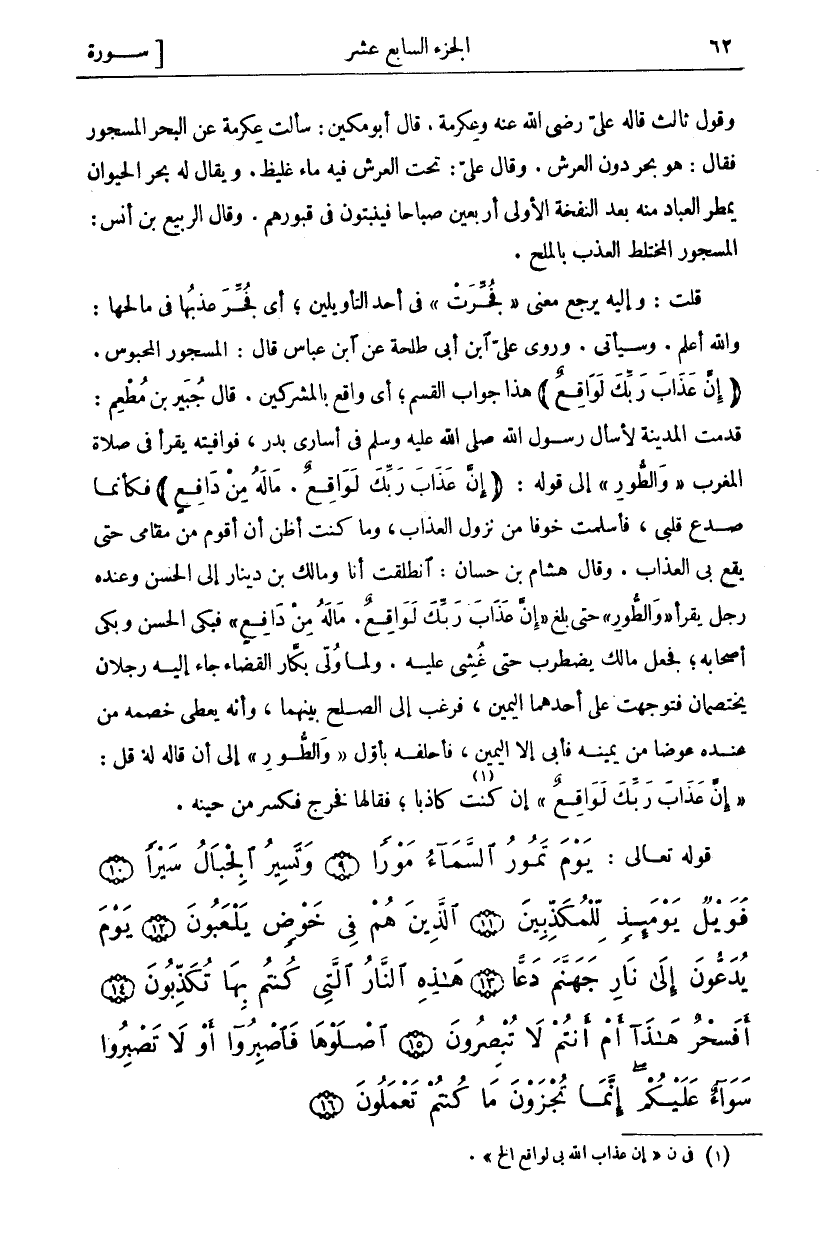 ٦٢ الجزء السابع عشر [ ســـورة
وقول ثالث قاله علىّ رضى الله عنه وعكرمة . قال أبو مكين : سألت عكرمة عن البحر المسجور
فقال : هو بحر دون العرش . وقال علىّ : تحت العرش فيه ماء غليظ . ويقال له بحر الحيوان
يمطر العباد منه بعد النفخة الأولى أربعين صباحا فينبتون فى قبورهم . وقال الربيع بن أنس :
المسجور المختلط العذب بالملح .
قلت : وإليه يرجع معنى « بُجِّرَتْ » فى أحد التأويلين ؛ أى فُجِّرَ عذبُها فى مالحها :
والله أعلم . وسـيأتى . وروى علىّ آبن أبى طلحة عن آبن عباس قال : المسجور المحبوس .
﴿ إِنَّ عَذَابَ رَبِّكَ لَوَاقِـعٌ ﴾ هذا جواب القسم ؛ أى واقع بالمشركين . قال جُبَير بن مُطْعِم :
قدمت المدينة لأسأل رسـول الله صلى الله عليه وسلم فى أسارى بدر ، فوافيته يقرأ فى صلاة
المغرب « وَالطُّورِ » إلى قوله : ﴿ إِنَّ عَذَابَ رَبِّكَ لَوَاقِـعٌ . مَالَهُ مِنْ دَافِعٍ ﴾ فكأنمـا
صـدع قلبى ، فأسلمت خوفا من نزول العذاب ، وما كنت أظن أن أقوم من مقامى حتى
يقع بى العذاب . وقال هشام بن حسان : آنطلقت أنا ومالك بن دينار إلى الحسن وعنده
رجل يقرأ « وَالطُّورِ » حتى بلغ « إِنَّ عَذَابَ رَبِّكَ لَوَاقِـعٌ . مَالَهُ مِنْ دَافِعٍ » فبكى الحسن وبكى
أصحابه ؛ فجعل مالك يضطرب حتى غُشِى عليـه . ولمـا وُلّى بكّار القضاء جاء إليـه رجلان
يختصمان فتوجهت على أحدهما اليمين ، فرغب إلى الصـلح بينهما ، وأنه يعطى خصمه من
عنـده عوضا من يمينـه فأبى إلا اليمين ، فأحلفـه بأوّل « وَالطُّـورِ » إلى أن قال له قل :
« إِنَّ عَذَابَ رَبِّكَ لَوَاقِـعٌ » (١) إن كنت كاذبا ؛ فقالها فخرج فكسر من حينه .
قوله تعـالى : يَوْمَ تَمُورُ ٱلسَّمَآءُ مَوْرًا ۝٩ وَتَسِيرُ ٱلْجِبَالُ سَيْرًا ۝١٠
فَوَيْلٌ يَوْمَئِذٍ لِّلْمُكَذِّبِينَ ۝١١ ٱلَّذِينَ هُمْ فِى خَوْضٍ يَلْعَبُونَ ۝١٢ يَوْمَ
يُدَعُّونَ إِلَىٰ نَارِ جَهَنَّمَ دَعًّا ۝١٣ هَـٰذِهِ ٱلنَّارُ ٱلَّتِى كُنتُم بِهَا تُكَذِّبُونَ ۝١٤
أَفَسِحْرٌ هَـٰذَآ أَمْ أَنتُمْ لَا تُبْصِرُونَ ۝١٥ ٱصْلَوْهَا فَٱصْبِرُوٓا أَوْ لَا تَصْبِرُوا
سَوَآءٌ عَلَيْكُمْ إِنَّمَـا تُجْزَوْنَ مَا كُنتُمْ تَعْمَلُونَ ۝١٦
(١) فى ن « إن عذاب الله بى لواقع الخ » .